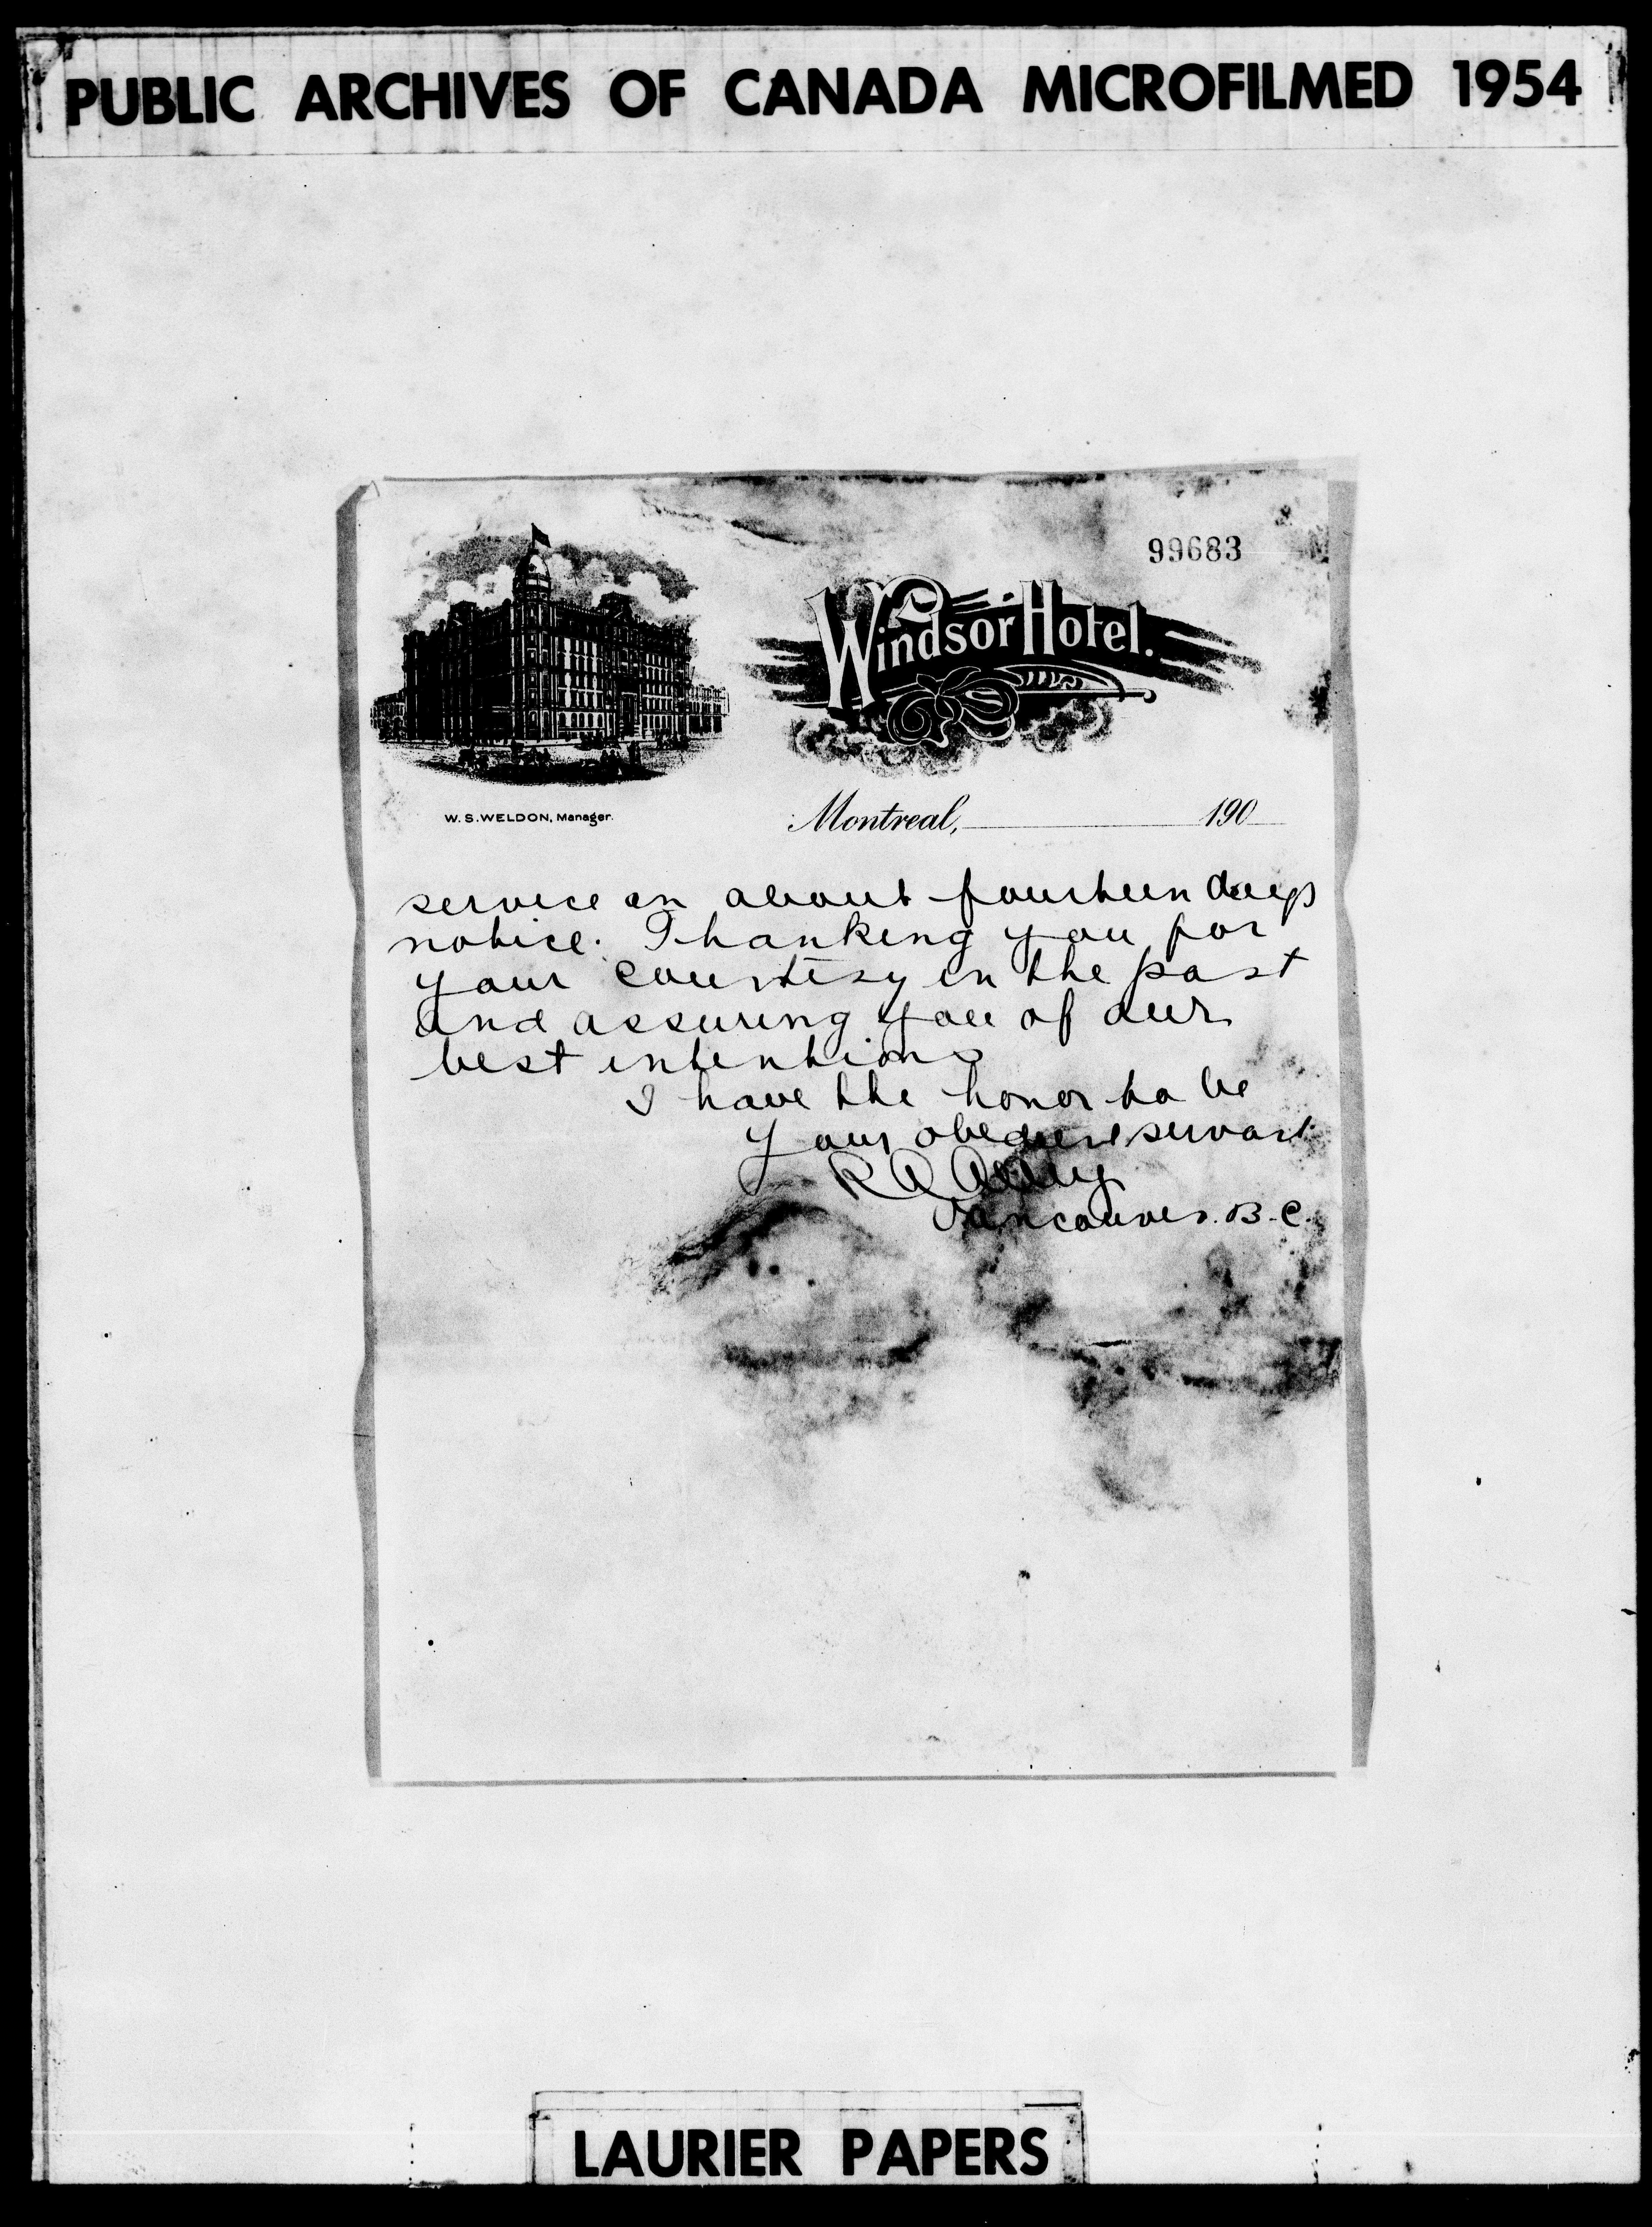 PUBLIC ARCHIVES OF CANADA MICROFILMED 1954
99683
Windsor Hotel.
W. S. WELDON, Manager.
Montreal, 190
service on about fourteen days
notice. Thanking you for
your courtesy in the past
and assuring you of our
best intentions
I have the honor to be
Your obedient servant
R A
Vancouver. B.C.
LAURIER PAPERS